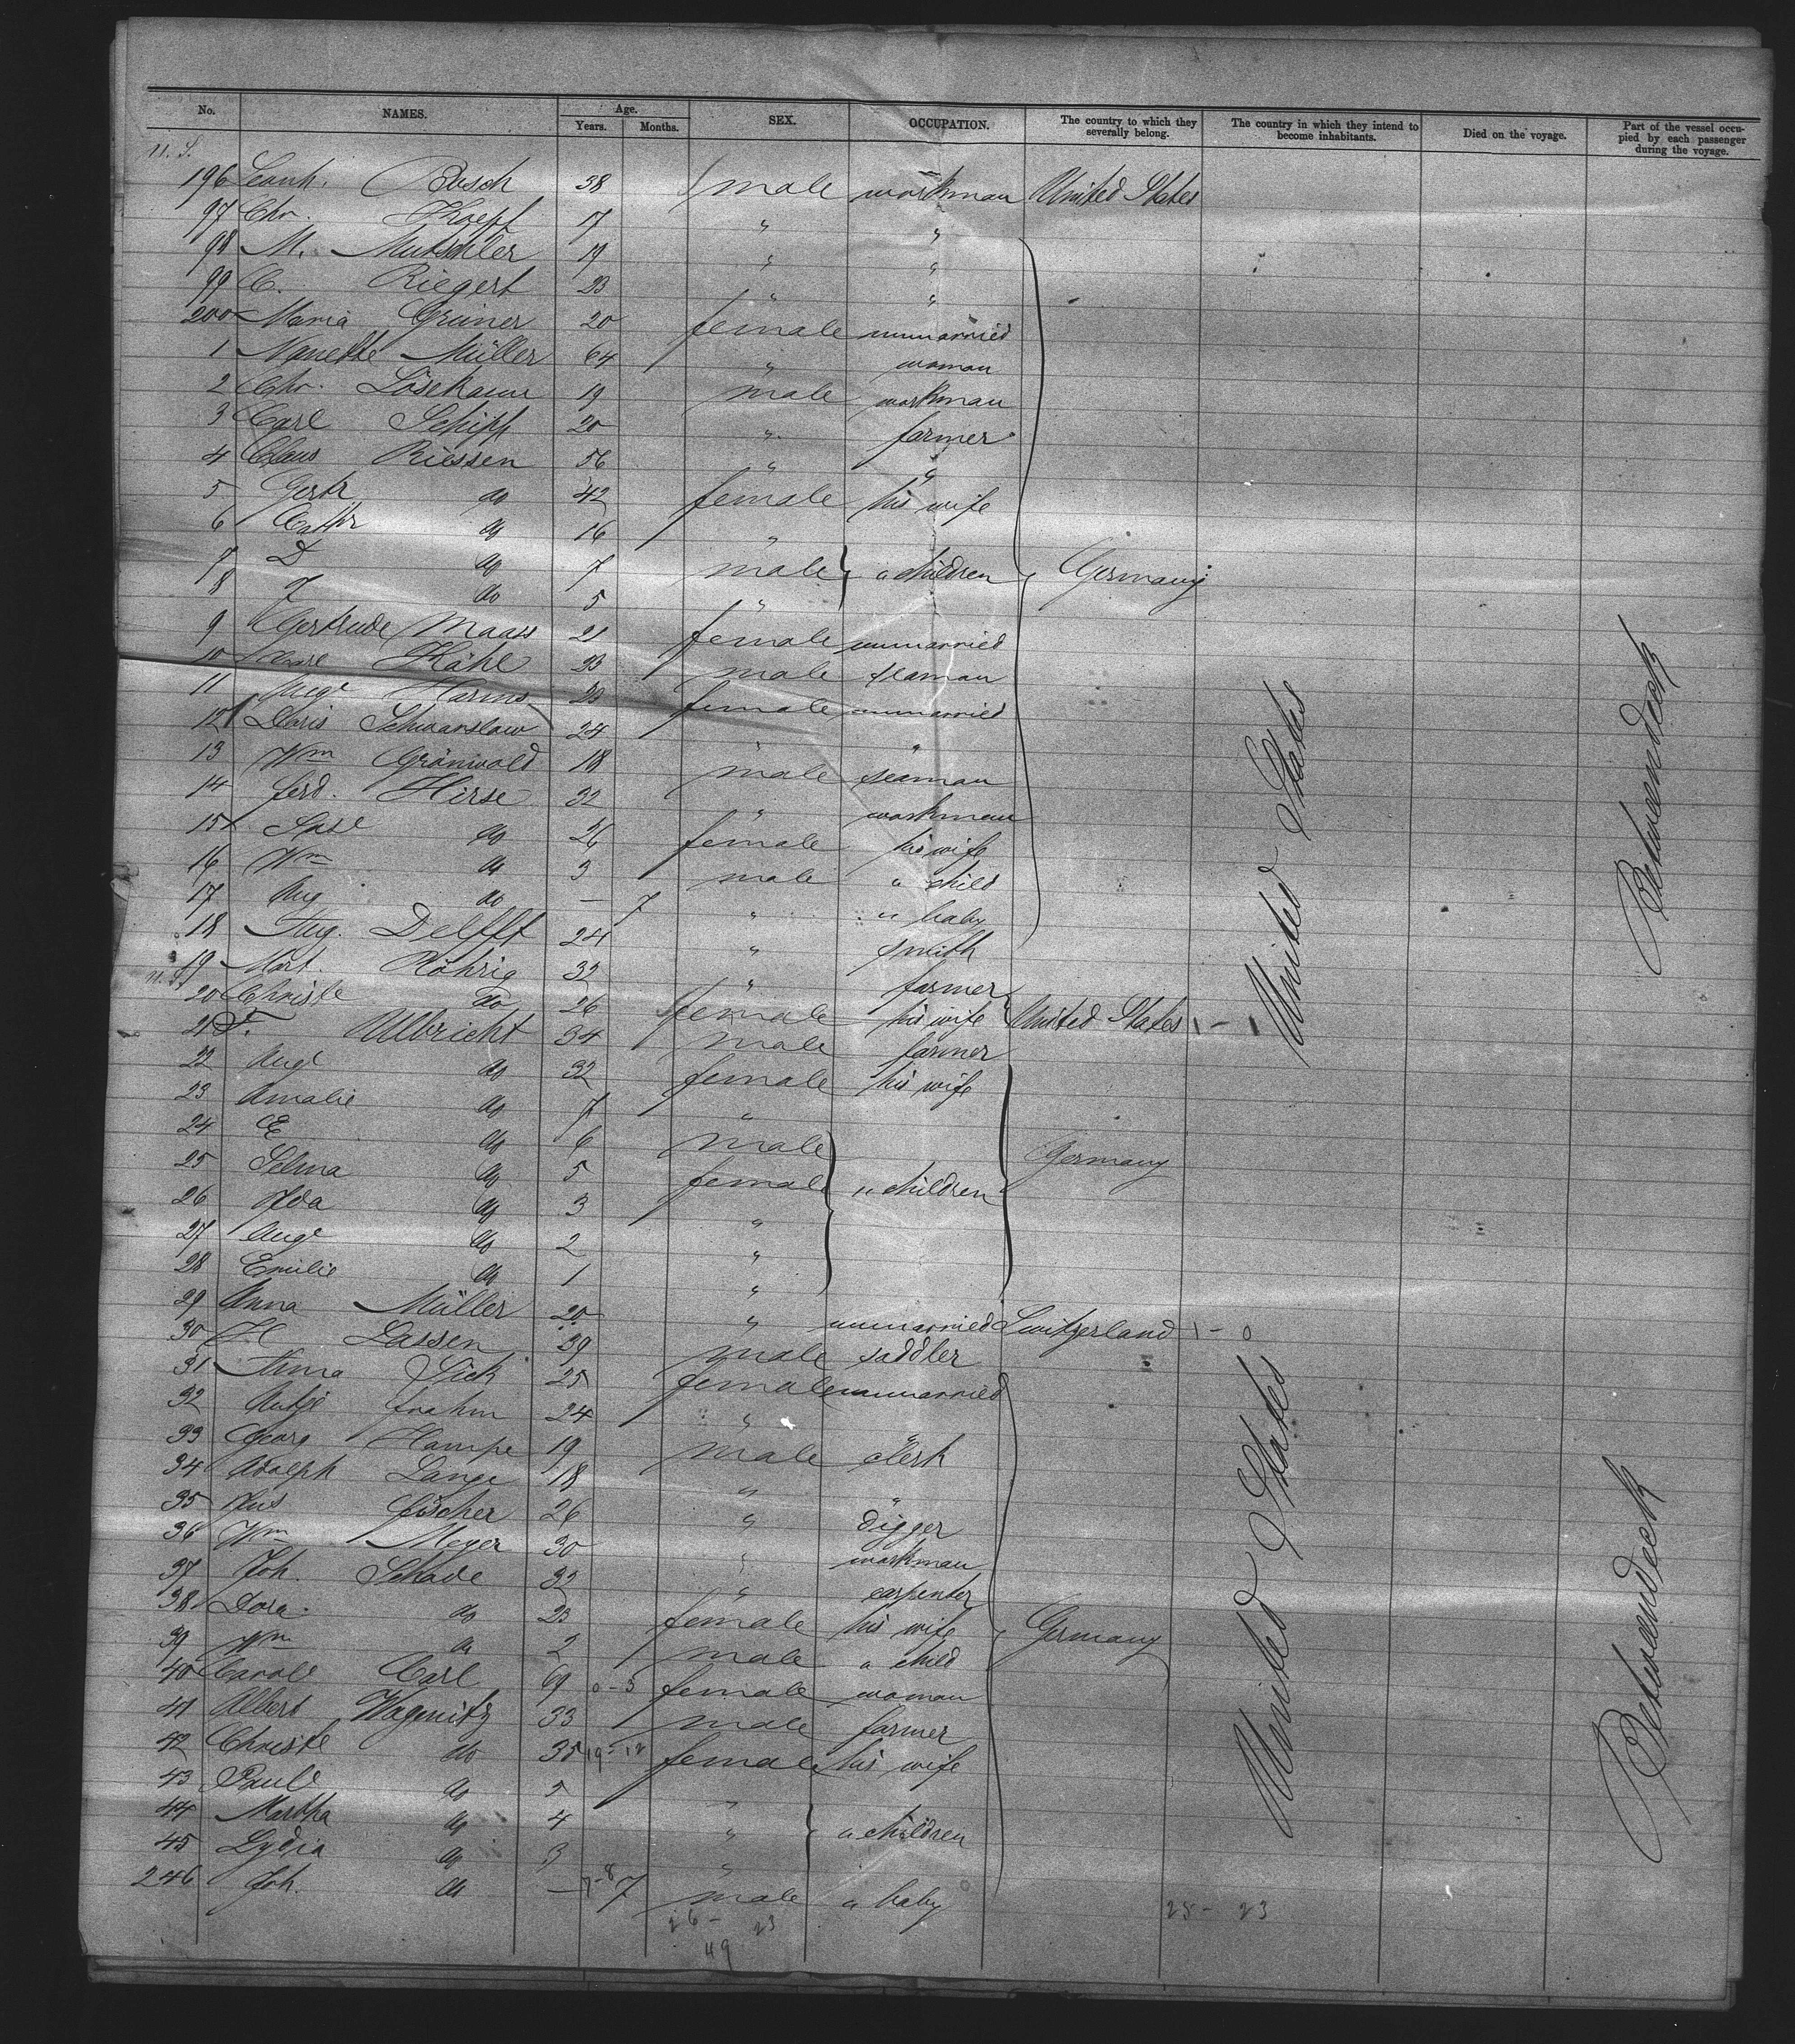 No. NAMES. Age. Years. Months. SEX. OCCUPATION. The country to which they severally belong. The country in which they intend to become inhabitants. Died on the voyage. Part of the vessel occupied by each passenger during the voyage.
U. S.
196 Leonh. Busch 38 male workman United States
97 Chr. Knepf 17 " "
98 M. Mutschler 19 " "
99 C. Riegert 23 " "
200 Maria Greiner 20 female unmarried
1 Nanette Müller 64 " woman
2 Chr. Lösekann 19 male workman
3 Carl Schipp 20 " farmer
4 Claus Riessen 56 " "
5 Gertr do 42 female his wife
6 Cathr do 16 "
7 D do 7 male " children Germany
8 J do 5 "
9 Gertrude Maass 21 female unmarried
10 Carl Kähl 23 male seaman
11 Auge Harms 23 female unmarried
12 Doris Schwarslow 24 " "
13 Wm Grönwold 18 male seaman
14 Ferd. Hirse 32 " workman
15 do 26 female his wife
16 Wm do 3 male " child
17 Aug do — 7 " " baby
18 Aug. Delfft 24 " smith
19 Mart. Röhrig 32 " farmer
U. S.
20 Christe do 26 female his wife United States 1 - 1
21 F. Ulbricht 34 male farmer
22 Auge do 32 female his wife
23 Amalie do 7 "
24 E do 6 male
25 Selma do 5 female " children Germany
26 Ida do 3 "
27 Auge do 2 "
28 Emilie do 1 "
29 Anna Müller 20 " unmarried Switzerland 1 - 0
30 H Lassen 39 male saddler
31 Anna Sick 25 female unmarried
32 Antje Frahm 24 " "
33 Georg Hampe 19 male clerk
34 Adolph Lange 18 " "
35 Fischer 26 " digger
36 Wm Meyer 30 " workman
37 Joh. Schade 32 " carpenter
38 Dora do 23 female his wife Germany
39 Wm do 2 male " child
40 Carole Carl 69 0-5 female woman
41 Albert Wagenitz 33 male farmer
42 Christe do 35 19-12 female his wife
43 Paule do 5 "
44 Martha do 4 " " children
45 Lydia do 3 "
246 Joh. do — 7-8 7 male " baby
26 - 23
25 - 23
49
United States
Betweendeck
United States
Betweendeck